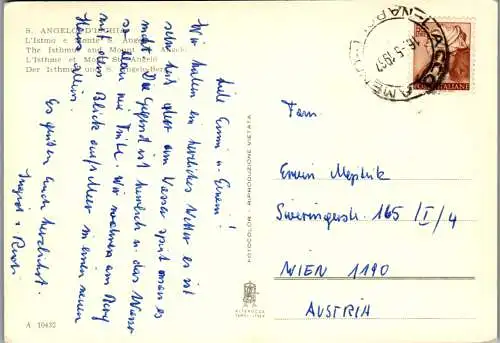 S. ANGELO D'ISCHIA
L'Istmo e Monte S. Angelo
The Isthmus and Mount S. Angelo
L'Isthme et Mont St. Angelo
Der Isthmus und S. Angelo Berg
Liebe Emmi u. Erwin!
Wir haben ein herrliches Wetter es ist
sehr heiß aber am Wasser spürt man es
nicht. Die Gegend ist herrlich u. das Wasser
so blau wie Tinte. Wir wohnen am Berg
mit dem Blick aufs Meer in einem neuen
Haus allein.
Es grüßen Euch herzlichst.
Ingrid u. Rudi
A 10432
FOTOCOLOR - RIPRODUZIONE VIETATA
ALTEROCCA
TERNI-ITALY
POSTE ITALIANE
Fam.
Erwin
165 I/4
WIEN 1190
AUSTRIA